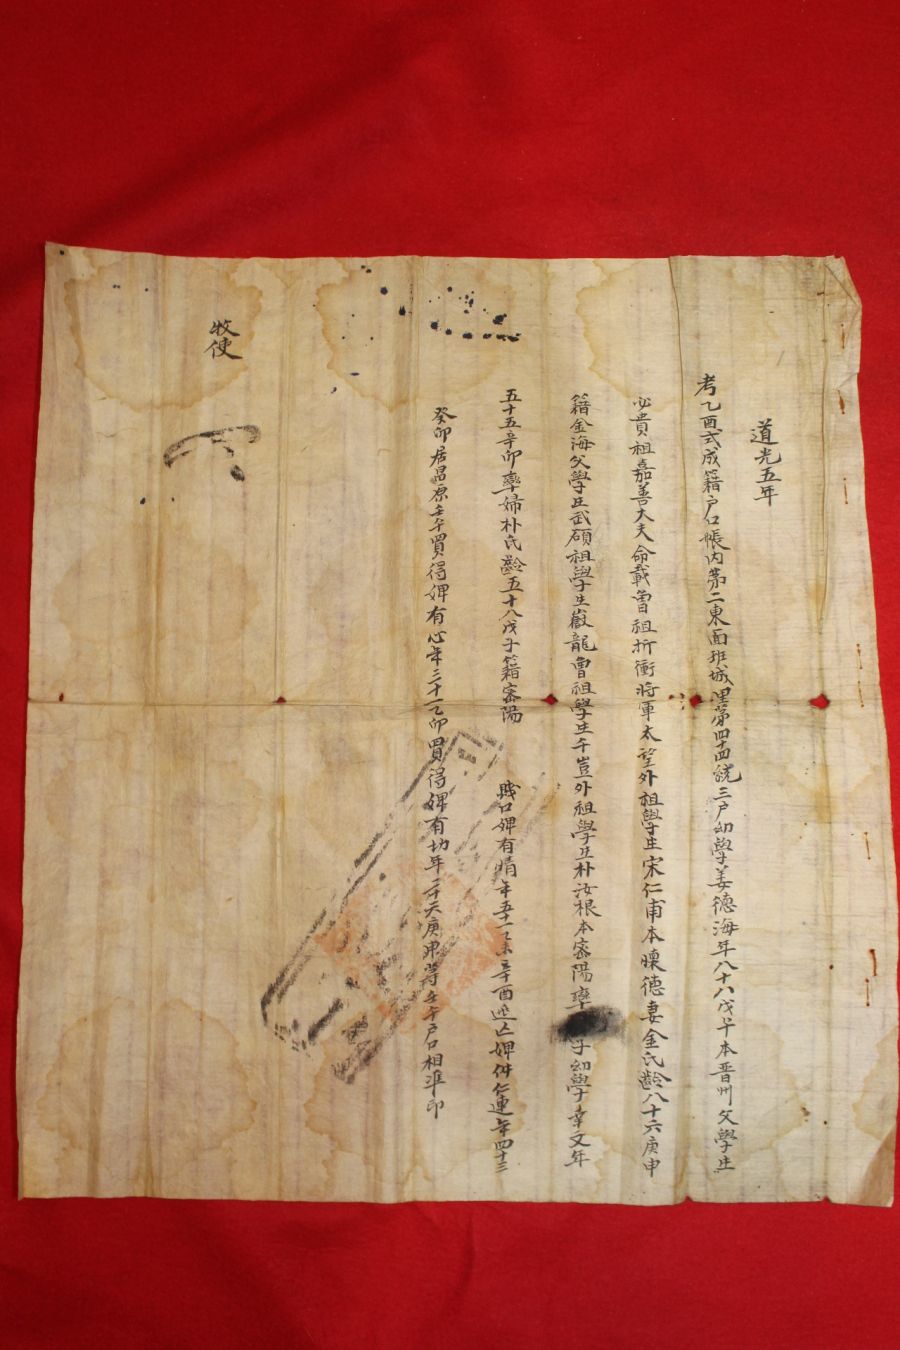 道光五年
考乙酉式成籍戶口帳內第二東面班城里第四十四統三戶幼學姜德海年八十八戊午本晋州父學生
必貴祖嘉善大夫命載曾祖折衝將軍太望外祖學生宋仁甫本懷德妻金氏齡八十六庚申
籍金海父學生武碩祖學生嚴龍曾祖學生千豈外祖學生朴汝根本密陽率子幼學幸文年
五十五辛卯率婦朴氏齡五十八戊子籍密陽 賤口婢有晴年五十一乙未辛酉逃亡婢件仁連年四十三
癸卯居昌原壬午買得婢有心年三十一乙卯買得婢有切年二十六庚申等壬午戶口相準印
牧使